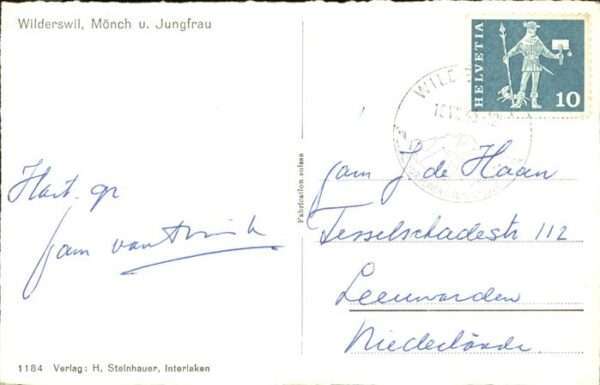 Wilderswil, Mönch u. Jungfrau
HELVETIA
10
WILD
Hart. gr
fam van
Fabrication suisse
fam J. de Haan
Tesselschadestr 112
Leeuwarden
Niederlände
1184 Verlag: H. Steinhauer, Interlaken